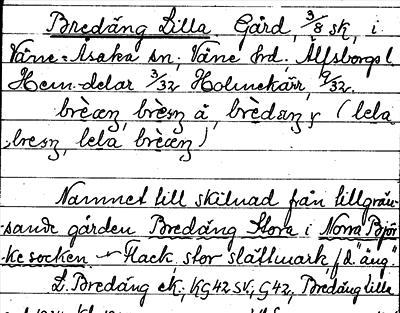 Bredäng Lilla. Gård, 3/8 sk, i
Väne-Åsaka sn; Väne hrd. Älfsborgs l.
Hem. delar 3/32 Holmekärr, 9/32.
brèæŋ, brèsŋ å, brèdæŋ (lela
bresŋ, lela brèæŋ)
Namnet till skilnad från tillgrän-
sande gården Bredäng Stora i Norra Björ
ke socken. Flack stor slättmark, f.d. "äng".
L. Bredäng ek; KG42 sk; G42, Bredäng Lilla